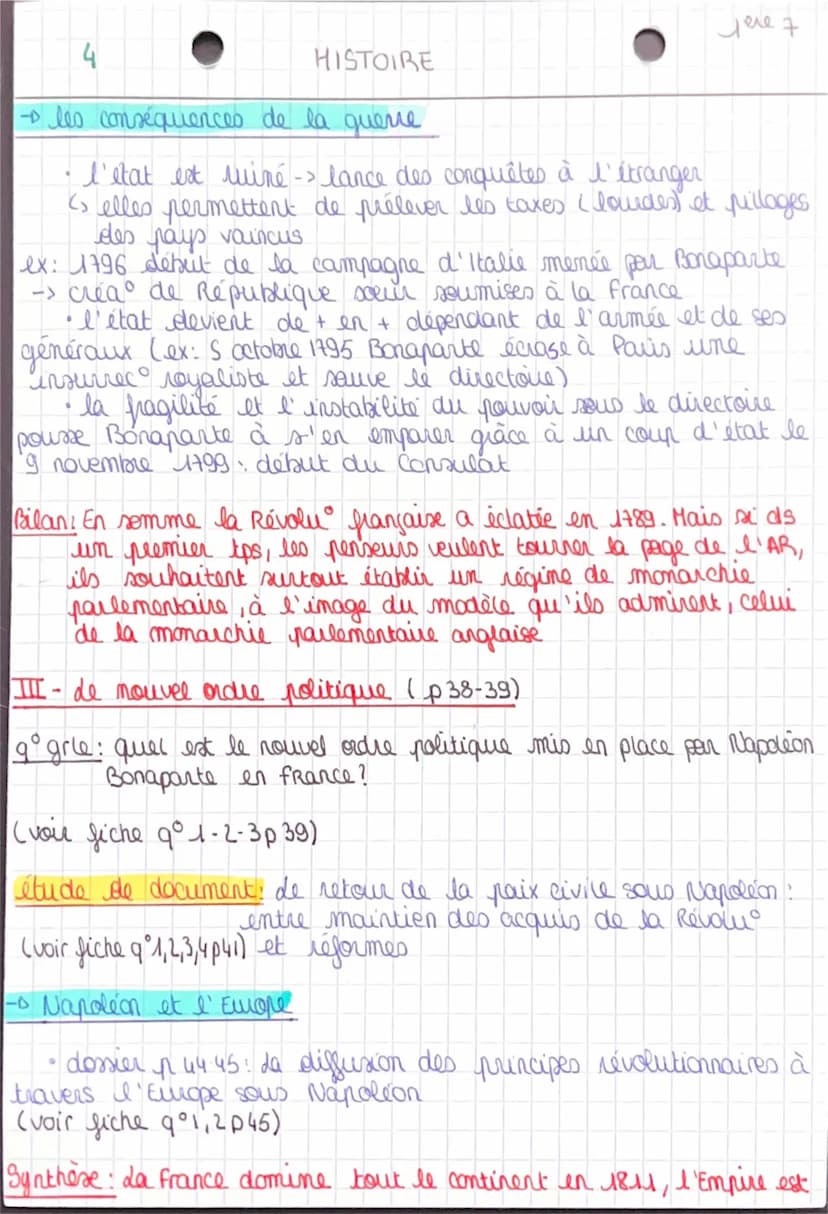 1ere 7
4 HISTOIRE
→ les conséquences de la guerre
• l'état est ruiné -> lance des conquêtes à l'étranger
↳ elles permettent de prélever les taxes (lourdes) et pillages
des pays vaincus
ex: 1796 début de la campagne d'Italie menée par Bonaparte
-> créa° de République sœur soumises à la France
• l'état devient de + en + dépendant de l'armée et de ses
généraux (ex: 5 octobre 1795 Bonaparte écrase à Paris une
insurrec° royaliste et sauve le directoire)
• la fragilité et l'instabilité du pouvoir sous le directoire
pousse Bonaparte à s'en emparer grâce à un coup d'état le
9 novembre 1799: début du Consulat
Bilan: En somme la Révolu° française a éclatée en 1789. Mais si ds
un premier tps, les penseurs veulent tourner la page de l'AR,
ils souhaitent surtout établir un régime de monarchie
parlementaire, à l'image du modèle qu'ils admirent, celui
de la monarchie parlementaire anglaise
III - Le nouvel ordre politique (p38-39)
q° grle: quel est le nouvel ordre politique mis en place par Napoléon
Bonaparte en France?
(voir fiche q° 1-2-3p39)
étude de document: Le retour de la paix civile sous Napoléon:
entre maintien des acquis de la Révolu°
(voir fiche q°1,2,3,4p41) et réformes
→ Napoléon et l'Europe
• dossier p 44 45: La diffusion des principes révolutionnaires à
travers l'Europe sous Napoléon
(voir fiche q°1,2p45)
Synthèse: La France domine tout le continent en 1811, l'Empire est